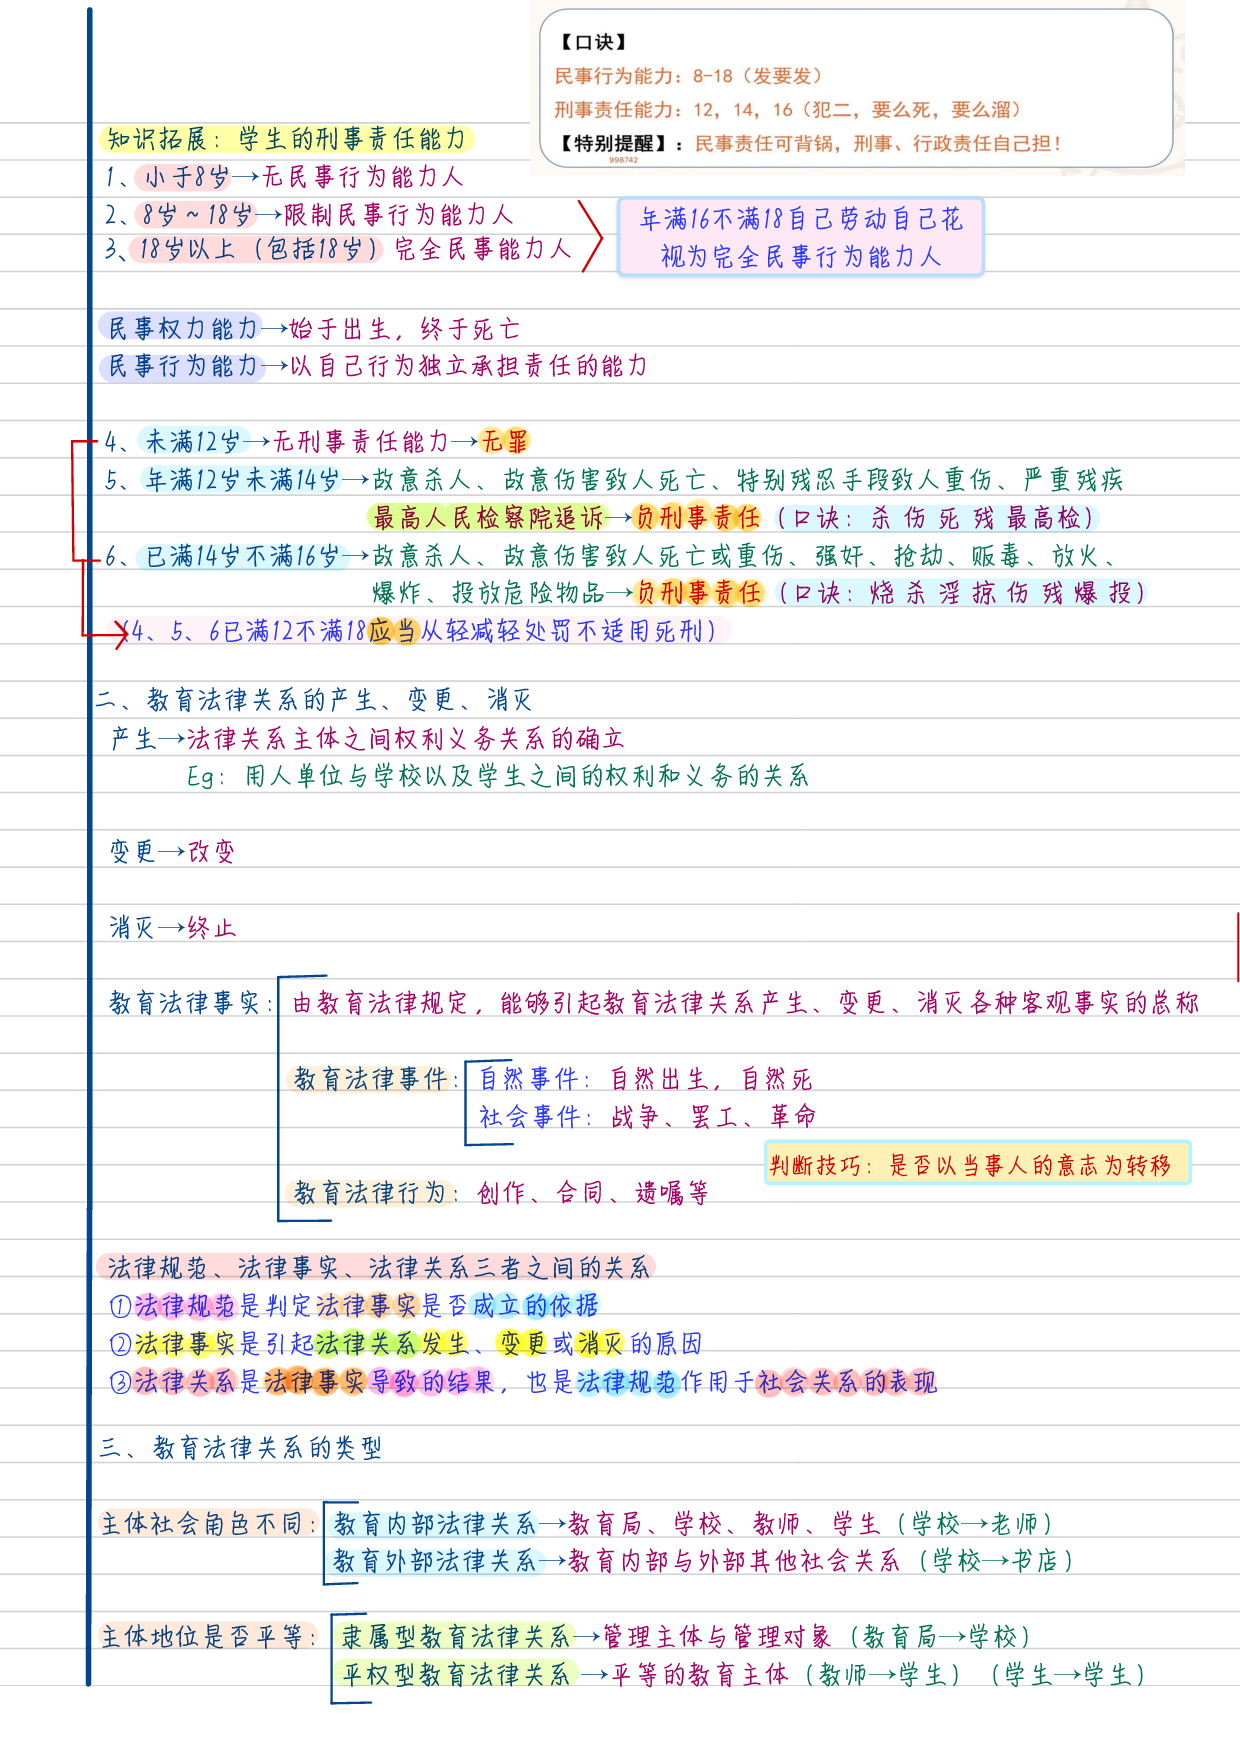 【口诀】
民事行为能力：8-18（发要发）
刑事责任能力：12，14，16（犯二，要么死，要么溜）
【特别提醒】：民事责任可背锅，刑事、行政责任自己担！
998742
知识拓展：学生的刑事责任能力
1、小于8岁→无民事行为能力人
2、8岁~18岁→限制民事行为能力人
3、18岁以上（包括18岁）完全民事能力人
年满16不满18自己劳动自己花
视为完全民事行为能力人
民事权力能力→始于出生，终于死亡
民事行为能力→以自己行为独立承担责任的能力
4、未满12岁→无刑事责任能力→无罪
5、年满12岁未满14岁→故意杀人、故意伤害致人死亡、特别残忍手段致人重伤、严重残疾
最高人民检察院追诉→负刑事责任（口诀：杀伤死残最高检）
6、已满14岁不满16岁→故意杀人、故意伤害致人死亡或重伤、强奸、抢劫、贩毒、放火、
爆炸、投放危险物品→负刑事责任（口诀：烧杀淫掠伤残爆投）
（4、5、6已满12不满18应当从轻减轻处罚不适用死刑）
二、教育法律关系的产生、变更、消灭
产生→法律关系主体之间权利义务关系的确立
Eg：用人单位与学校以及学生之间的权利和义务的关系
变更→改变
消灭→终止
教育法律事实：由教育法律规定，能够引起教育法律关系产生、变更、消灭各种客观事实的总称
教育法律事件：自然事件：自然出生，自然死
社会事件：战争、罢工、革命
判断技巧：是否以当事人的意志为转移
教育法律行为：创作、合同、遗嘱等
法律规范、法律事实、法律关系三者之间的关系
①法律规范是判定法律事实是否成立的依据
②法律事实是引起法律关系发生、变更或消灭的原因
③法律关系是法律事实导致的结果，也是法律规范作用于社会关系的表现
三、教育法律关系的类型
主体社会角色不同：教育内部法律关系→教育局、学校、教师、学生（学校→老师）
教育外部法律关系→教育内部与外部其他社会关系（学校→书店）
主体地位是否平等：隶属型教育法律关系→管理主体与管理对象（教育局→学校）
平权型教育法律关系→平等的教育主体（教师→学生）（学生→学生）